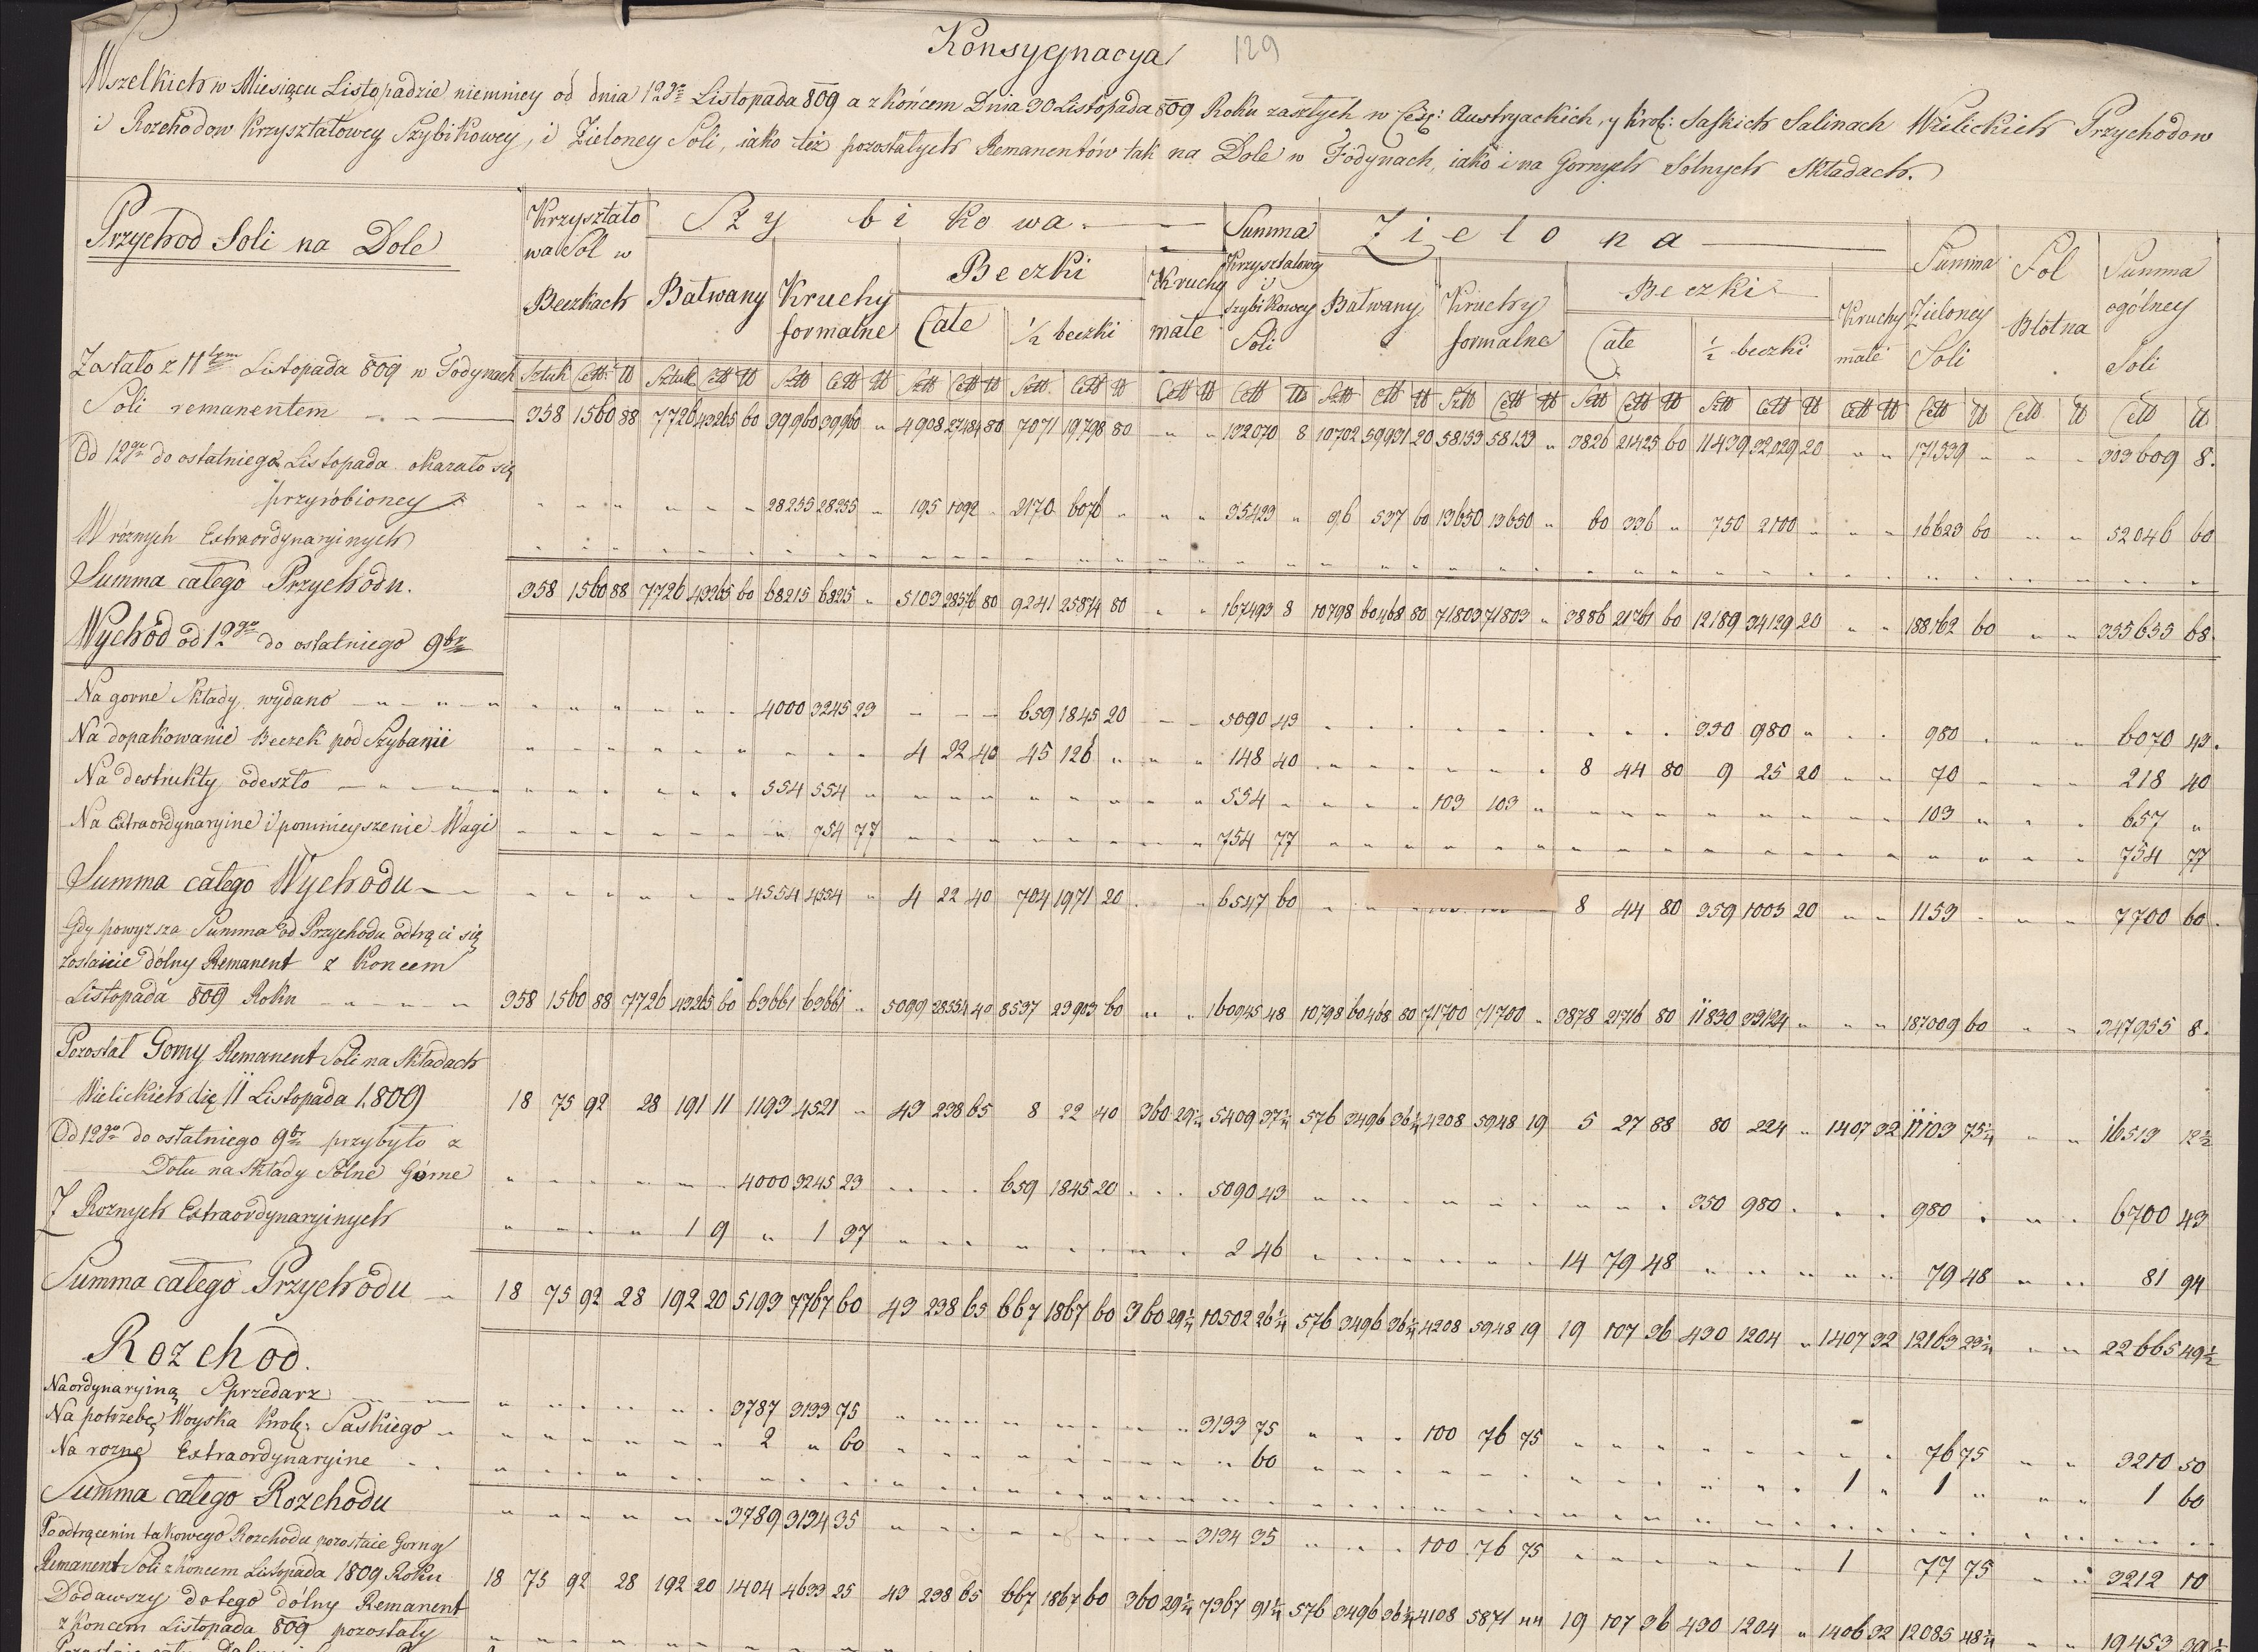 Konsygnacya 129
Wszelkich w Miesiącu Listopadzie niemniey od dnia 12go Listopada 809 a z końcem Dnia 30 Listopada 809 Roku zaszłych w Cesg: Austryackich, y Krol: Saskich Salinach Wielickich Przychodow
i Rozchodow Krzyształowey Szybikowey, i Zieloney Soli, iako też pozostałych Remanentów tak na Dole w Fodynach, iako i na Gornych Solnych Składach.
Przychod Soli na Dole
Krzyształowa Sol w Beczkach
Szybikowa
Bałwany Kruchy formalne Beczki Całe ½ beczki Kruchy małe
Summa Krzyształowey i Szybikowey Soli
Zielona
Bałwany Kruchy formalne Beczki Całe ½ beczki Kruchy małe
Summa Zieloney Soli
Sol Błotna
Summa ogólney Soli
Zostało z 11tym Listopada 809 w Fodynach
Soli remanentem 358 1560 88 7726 43265 60 39960 39960 " 4908 27484 80 7071 19798 80 " " 132070 8 10702 59931 20 58153 58153 " 3826 21425 60 11439 32029 20 " " 171539 " " " 303609 8
Od 12go do ostatniego Listopada okazało się
przyrobioney 28255 28255 " 195 1092 " 2170 6076 " " " 35423 " 96 537 60 13650 13650 " 60 336 " 750 2100 " " " 16623 60 " " 52046 60
W róznych Extraordynaryinych
Summa całego Przychodu. 358 1560 88 7726 43265 60 68215 68215 " 5103 28576 80 9241 25874 80 " " 167493 8 10798 60468 80 71803 71803 " 3886 21761 60 12189 34129 20 " " 188162 60 " " 355655 68
Wychód od 12go do ostatniego 9br
Na gorne Składy wydano 4000 3245 23 659 1845 20 5090 43 350 980 " 980 6070 43
Na dopakowanie Beczek pod Szybanii 4 22 40 45 126 " 148 40 8 44 80 9 25 20 70 218 40
Na destrukty odeszło 554 554 " 554 " 103 103 " 103 " 657 "
Na Extraordynaryine i pomnieyszenie Wagi " 754 77 754 77 754 77
Summa całego Wychodu 4554 4554 " 4 22 40 704 1971 20 6547 60 8 44 80 359 1005 20 1153 7700 60
Gdy powyzsza Summa od Przychodu odtrąci się
zostaiecie dólny Remanent z Koncem
Listopada 809 Roku 358 1560 88 7726 43265 60 63661 63661 " 5099 28554 40 8537 23903 60 " " 160945 48 10798 60468 80 71700 71700 " 3878 21716 80 11830 33124 " " " 187009 60 " " 347955 8
Pozostał Gorny Remanent Soli na Składach
Wielickich dię 11 Listopada 1809 18 75 92 28 191 11 1193 4521 " 43 238 65 8 22 40 360 29¼ 5409 37¼ 576 3496 36¼ 4208 5948 19 5 27 88 80 224 " 1407 32 11103 75¼ " " 16513 12½
Od 12go do ostatniego 9br przybyło z
Dołu na Składy Solne Górne 4000 3245 23 659 1845 20 5090 43 350 980 980 6700 43
Z Roznych Extraordynaryinych 1 9 " 1 37 2 46 14 79 48 79 48 81 94
Summa całego Przychodu 18 75 92 28 192 20 5193 7767 60 43 238 65 667 1867 60 360 29¼ 10502 26¼ 576 3496 36¼ 4208 5948 19 19 107 36 430 1204 " 1407 32 12163 23¼ " " 22665 49½
Rozchod.
Na ordynaryiną Sprzedarz 3787 3133 75 3133 75 100 76 75 76 75 3210 50
Na potrzebę Woyska Krol: Saskiego 2 " 60 60 1 " 1 " 1 60
Na rozne Extraordynaryine
Summa całego Rozchodu 3789 3134 35 3134 35 100 76 75 1 77 75 3212 10
Po odtrąceniu takowego Rozchodu pozostaie Gorny
Remanent Soli z Koncem Listopada 1809 Roku 18 75 92 28 192 20 1404 4633 25 43 238 65 667 1867 60 360 29¼ 7367 91¼ 576 3496 36¼ 4108 5871 44 19 107 36 430 1204 " 1406 32 12085 48¼ " " 19453
Dodawszy do tego dólny Remanent
z Koncem Listopada 809 pozostały